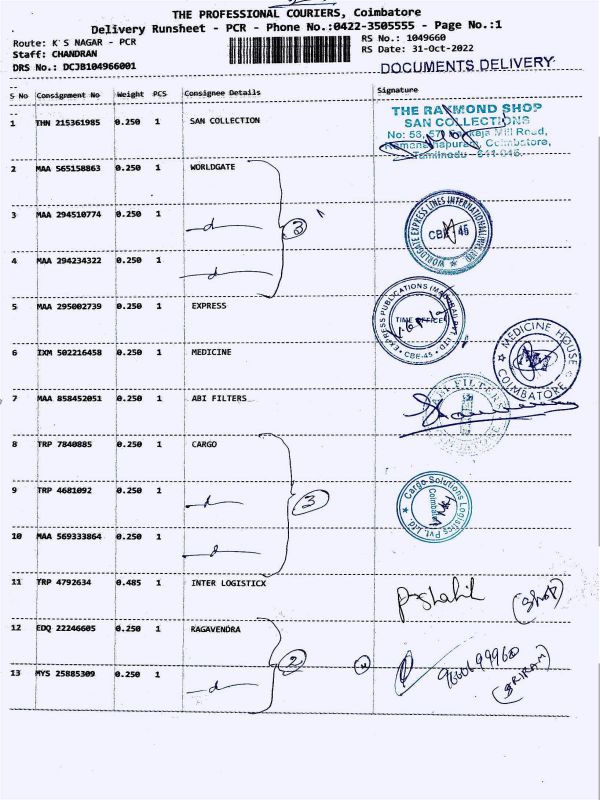 THE PROFESSIONAL COURIERS, Coimbatore
Delivery Runsheet - PCR - Phone No.:0422-3505555 - Page No.:1
Route: K S NAGAR - PCR
Staff: CHANDRAN
DRS No.: DCJB104966001
RS No.: 1049660
RS Date: 31-Oct-2022
DOCUMENTS DELIVERY
S No Consignment No Weight PCS Consignee Details Signature
1 THN 215361985 0.250 1 SAN COLLECTION
THE RAYMOND SHOP
SAN COLLECTIONS
No: 56, 57, Mill Road,
Ramanathapuram, Coimbatore,
Tamilnadu - 641 045.
2 MAA 565158863 0.250 1 WORLDGATE
3 MAA 294510774 0.250 1 d 3
WORLDGATE EXPRESS LINES INTERNATIONAL
CBE 45
4 MAA 294234322 0.250 1 d
5 MAA 295002739 0.250 1 EXPRESS
EXPRESS PUBLICATIONS
TIME OFFICE
CBE-45
6 IXM 502216458 0.250 1 MEDICINE
MEDICINE HOUSE
COIMBATORE
7 MAA 858452051 0.250 1 ABI FILTERS
ABI FILTERS
8 TRP 7840885 0.250 1 CARGO
9 TRP 4681092 0.250 1 d 3
Cargo Solutions Logistics Pvt. Ltd.
Coimbatore
10 MAA 569333864 0.250 1 d
11 TRP 4792634 0.485 1 INTER LOGISTICX
12 EDQ 22246605 0.250 1 RAGAVENDRA
2
13 MYS 25885309 0.250 1 d
(SRIRAM)